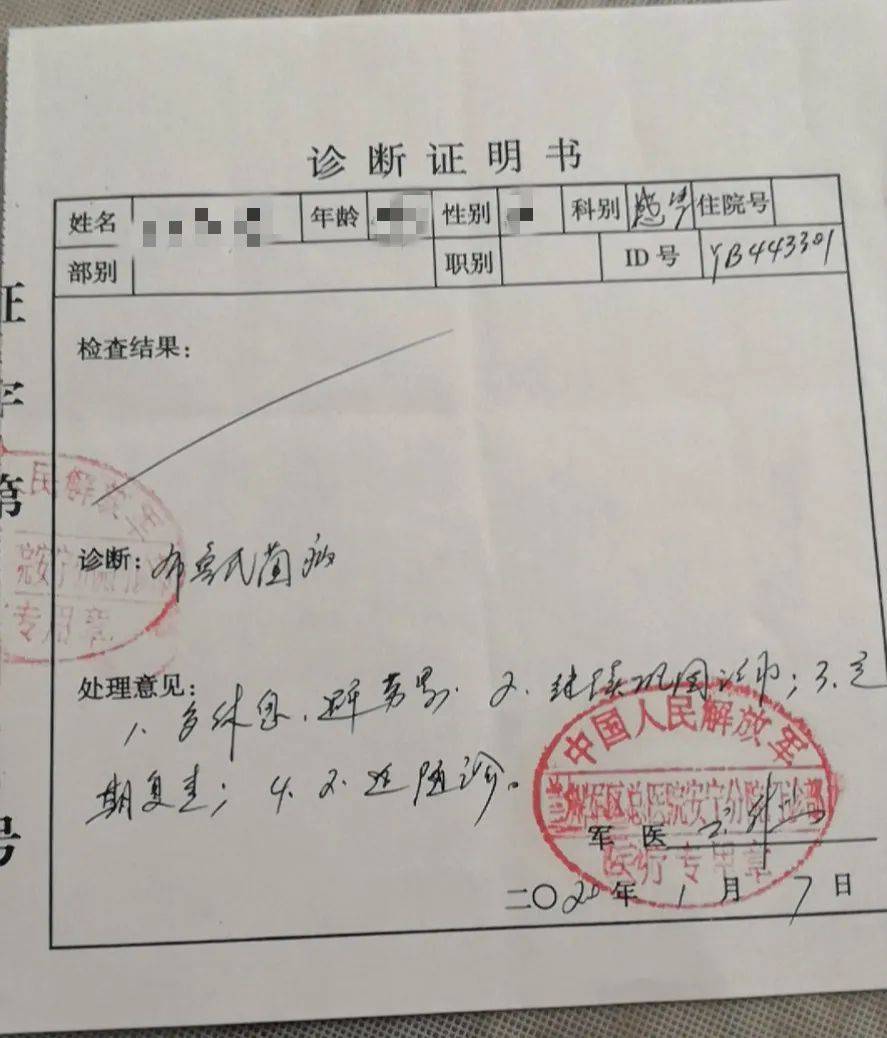 诊断证明书
姓名 年龄 性别 科别 感染 住院号
部别 职别 ID号 YB443301
检查结果:
诊断: 布鲁氏菌病
处理意见:
1、多休息、避劳累、2、继续巩固治疗;3、定
期复查;4、不适随诊。
中国人民解放军
区总医院安宁分院
医疗专用章
军医
二〇20年1月7日
证字第
号
民解放军
安宁分
专用章